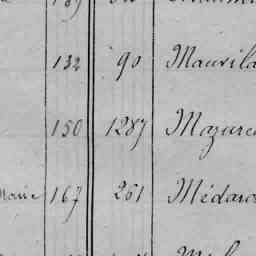 132 90 Maurila
150 1287 Mazure
Marie 167 261 Médard